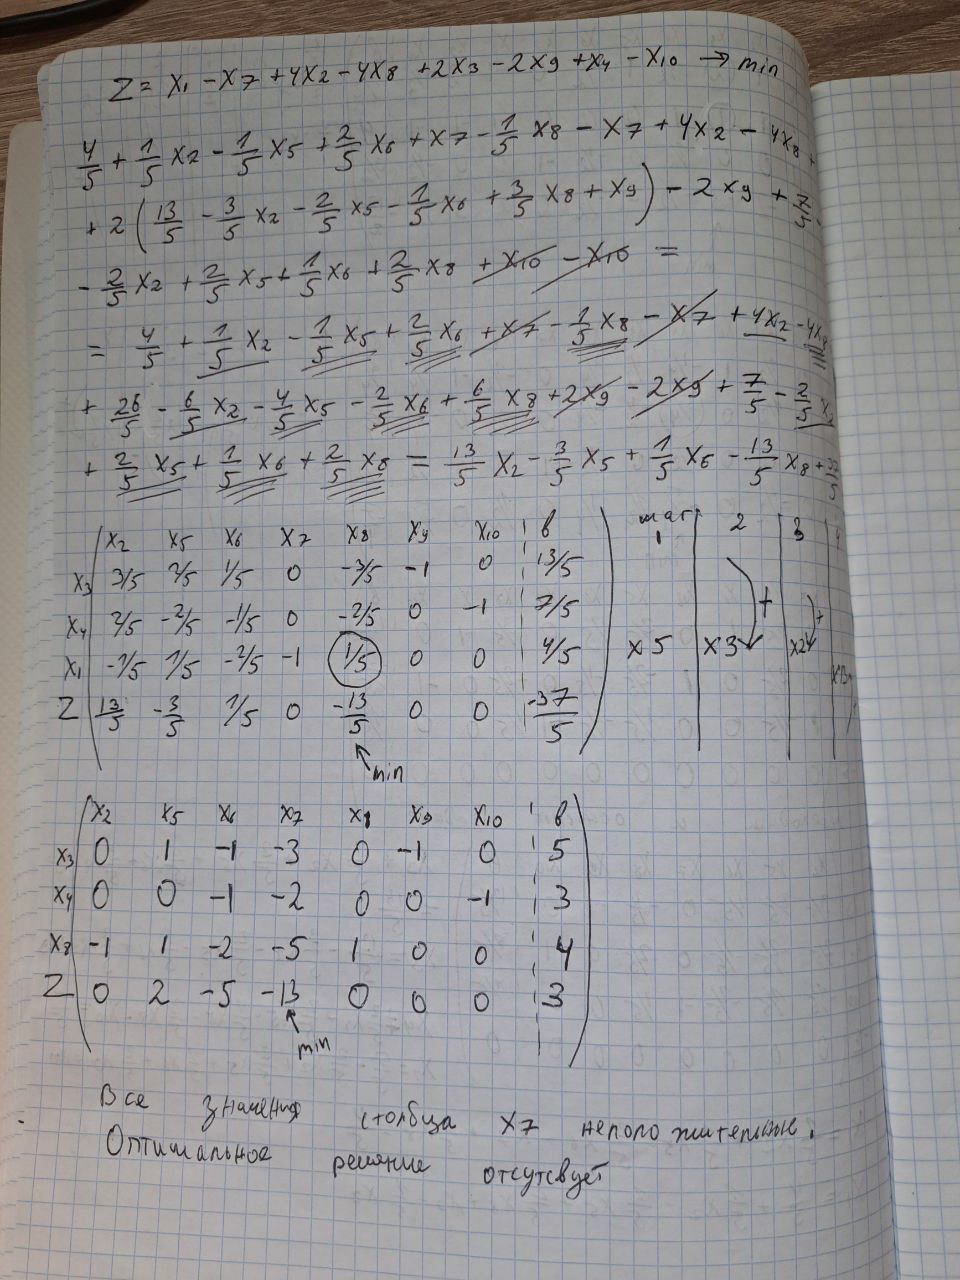 Z = x₁ - x₇ + 4x₂ - 4x₈ + 2x₃ - 2x₉ + x₄ - x₁₀ → min
4/5 + 1/5 x₂ - 1/5 x₅ + 2/5 x₆ + x₇ - 1/5 x₈ - x₇ + 4x₂ - 4x₈ +
+ 2 (13/5 - 3/5 x₂ - 2/5 x₅ - 1/5 x₆ + 3/5 x₈ + x₉) - 2x₉ + 7/5 -
- 2/5 x₂ + 2/5 x₅ + 1/5 x₆ + 2/5 x₈ + x₁₀ - x₁₀ =
= 4/5 + 1/5 x₂ - 1/5 x₅ + 2/5 x₆ + x₇ - 1/5 x₈ - x₇ + 4x₂ - 4x₈
+ 26/5 - 6/5 x₂ - 4/5 x₅ - 2/5 x₆ + 6/5 x₈ + 2x₉ - 2x₉ + 7/5 - 2/5 x₂
+ 2/5 x₅ + 1/5 x₆ + 2/5 x₈ = 13/5 x₂ - 3/5 x₅ + 1/5 x₆ - 13/5 x₈ + 37/5
x₂ x₅ x₆ x₇ x₈ x₉ x₁₀ b шаг 1 2 3 4
x₃ 3/5 2/5 1/5 0 -3/5 -1 0 13/5
x₄ 2/5 -2/5 -1/5 0 -2/5 0 -1 7/5 +
x₁ -1/5 1/5 -2/5 -1 1/5 0 0 4/5 x5 x3 x2 +
Z 13/5 -3/5 1/5 0 -13/5 0 0 -37/5
min
x₂ x₅ x₆ x₇ x₈ x₉ x₁₀ b
x₃ 0 1 -1 -3 0 -1 0 5
x₄ 0 0 -1 -2 0 0 -1 3
x₈ -1 1 -2 -5 1 0 0 4
Z 0 2 -5 -13 0 0 0 3
min
Все значения столбца x7 неположительные.
Оптимальное решение отсутсвует